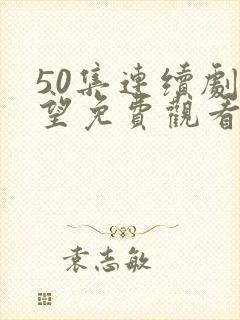 50集連續劇
望免費觀看
袁志敏